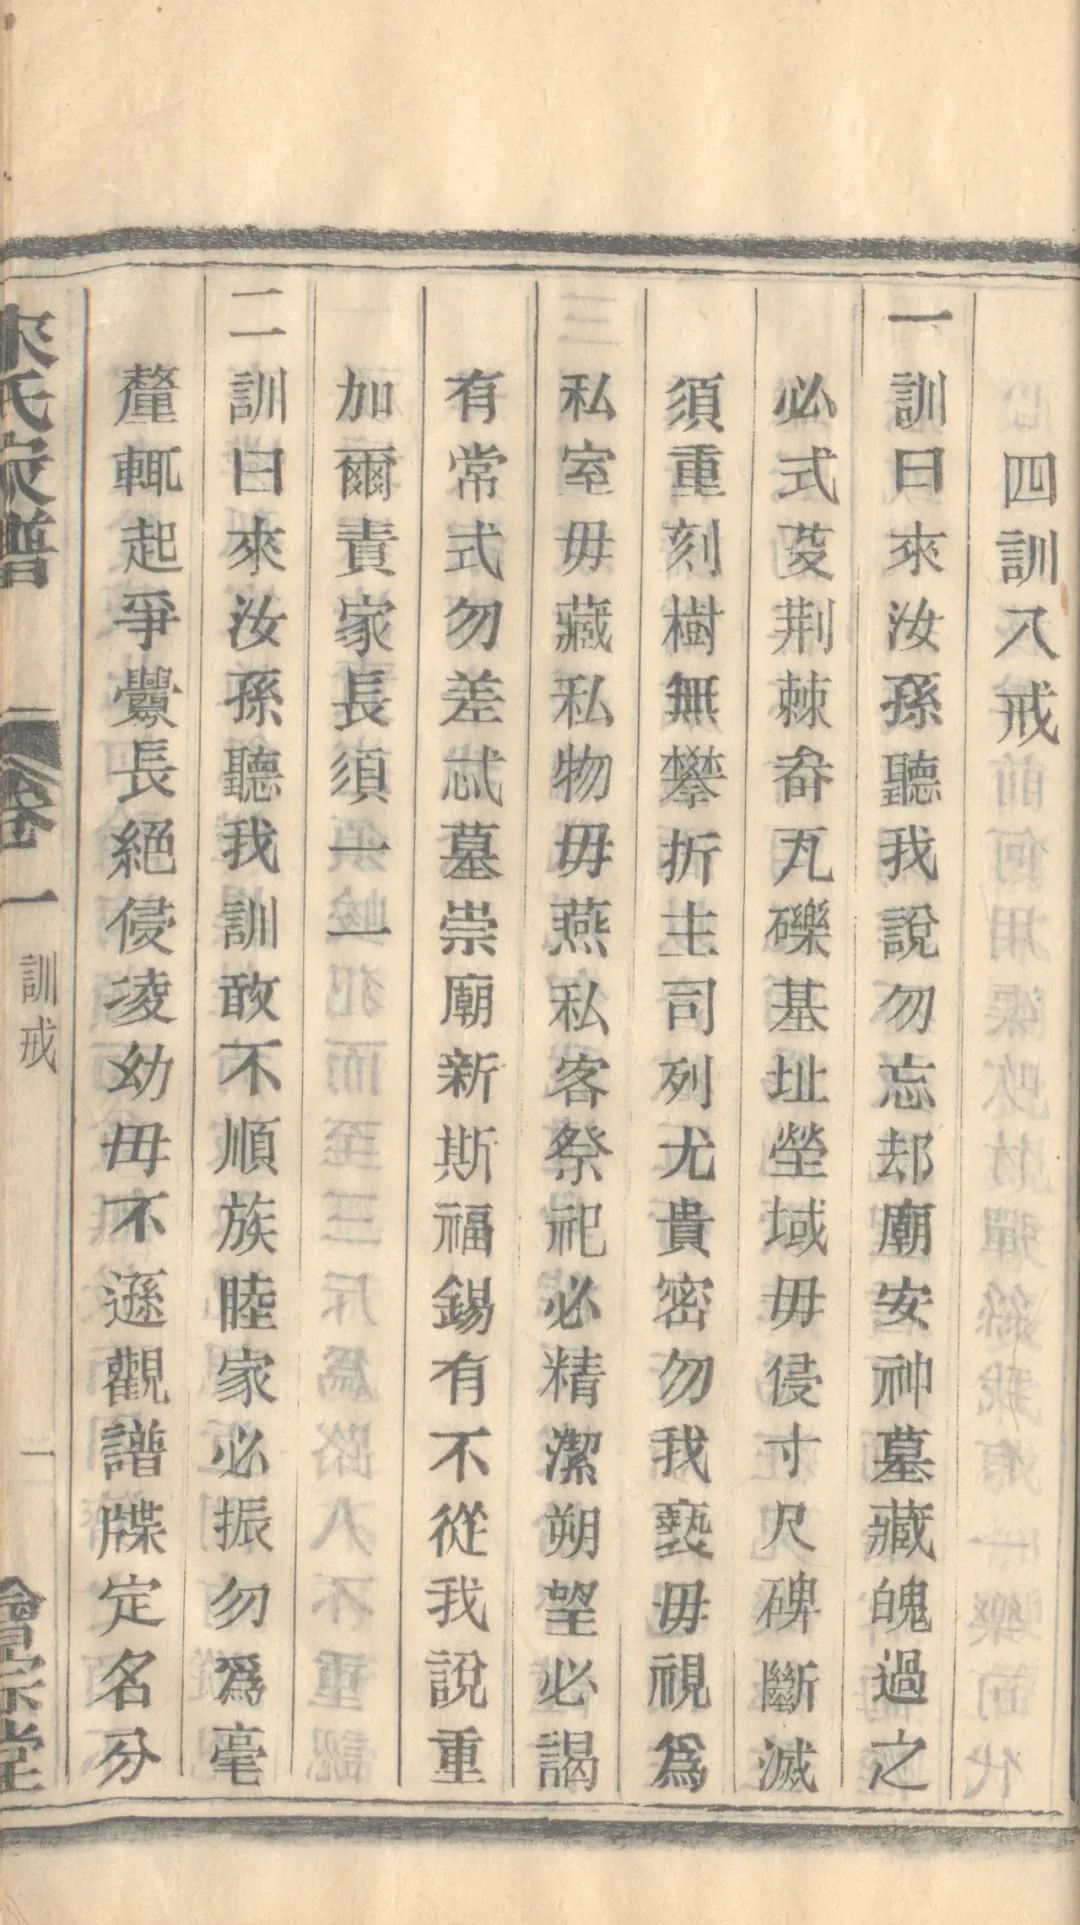 四訓八戒
一訓曰來汝孫聽我說勿忘却廟安神墓藏魄過之
必式芟荆棘畚瓦礫基址塋域毋侵寸尺碑斷滅
須重刻樹無攀折主司列尤貴密勿我褻毋視爲
私室毋藏私物毋燕私客祭祀必精潔朔望必謁
有常式勿差忒墓崇廟新斯福錫有不從我說重
加爾責家長須一一
二訓曰來汝孫聽我訓敢不順族睦家必振勿爲毫
釐輒起爭釁長絕侵凌幼毋不遜觀譜牒定名分
氏家譜
卷一
訓戒
二
會宗堂